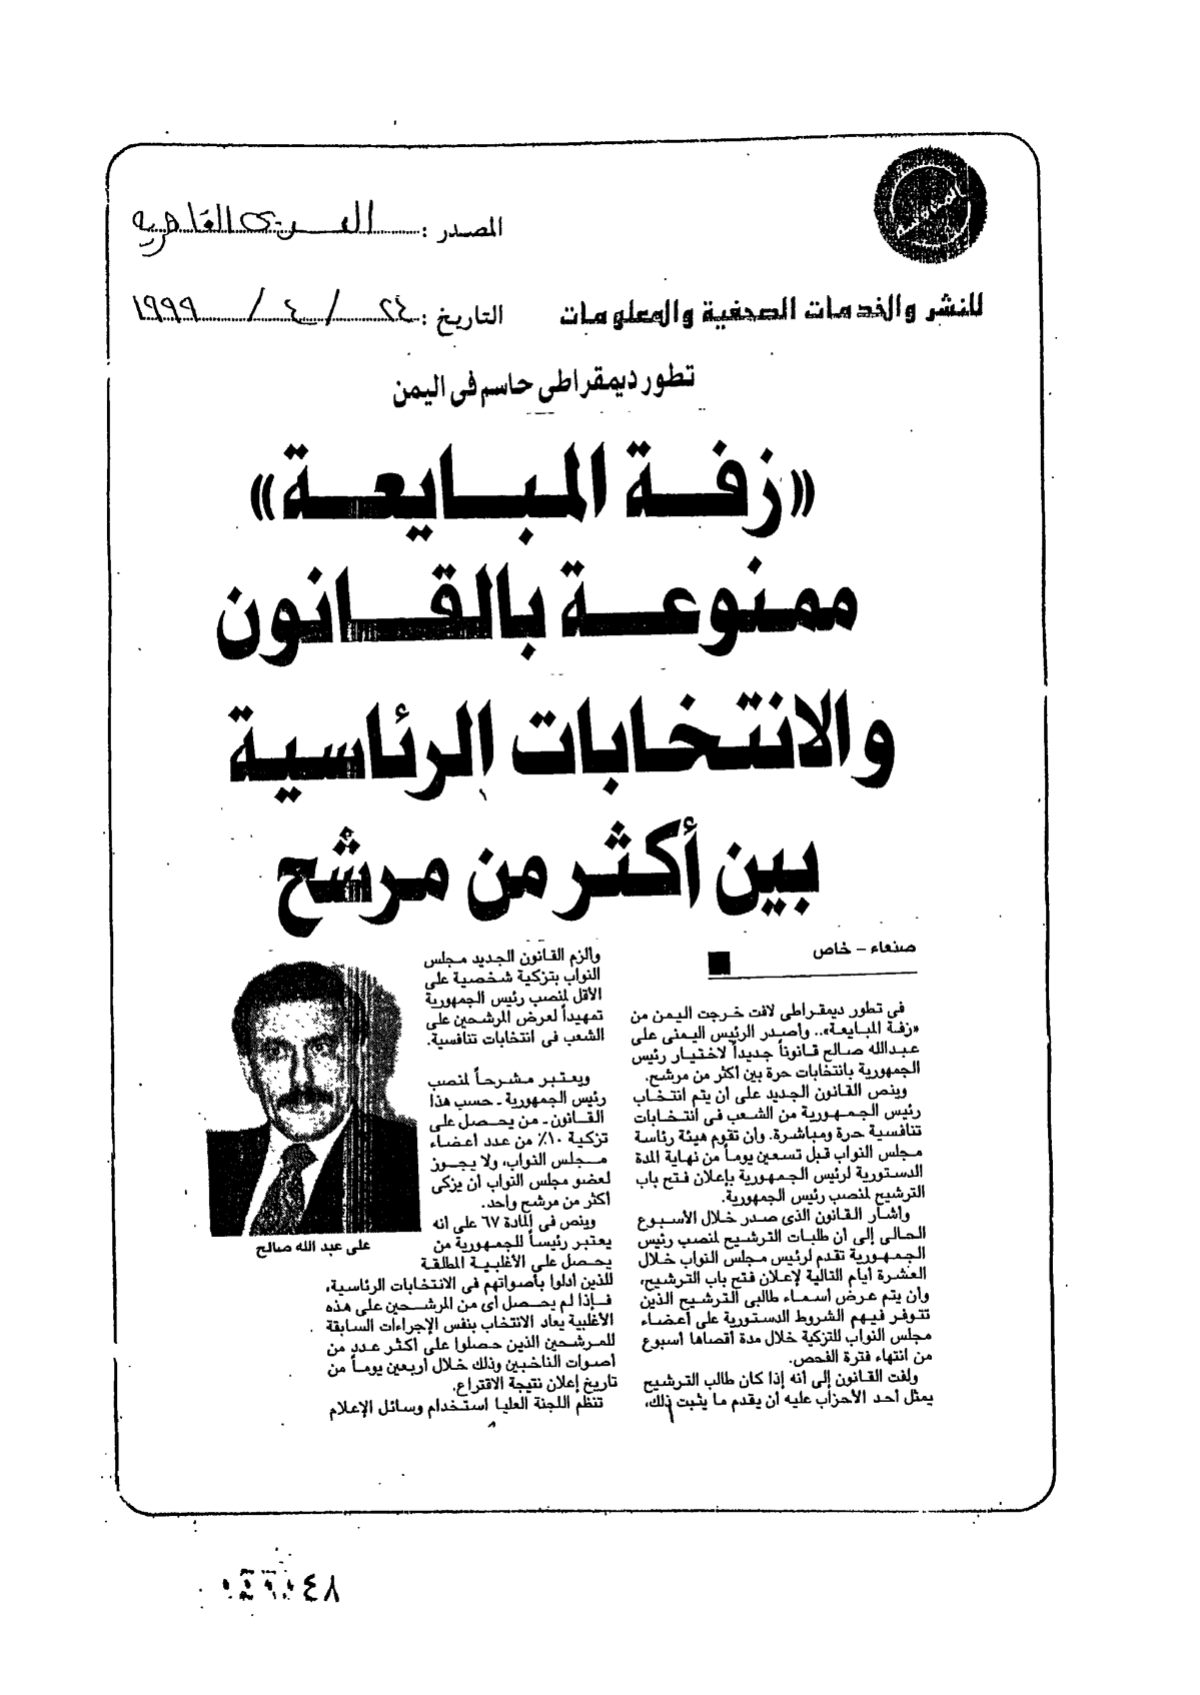 المصدر : العربى القاهرية
للنشر والخدمات الصحفية والمعلومات
التاريخ : ٢٤ / ٤ / ١٩٩٩
تطور ديمقراطى حاسم فى اليمن
«زفة المبايعة»
ممنوعة بالقانون
والانتخابات الرئاسية
بين أكثر من مرشح
صنعاء - خاص
فى تطور ديمقراطى لافت خرجت اليمن من
«زفة المبايعة».. وأصدر الرئيس اليمنى على
عبدالله صالح قانوناً جديداً لاختيار رئيس
الجمهورية بانتخابات حرة بين أكثر من مرشح.
وينص القانون الجديد على أن يتم انتخاب
رئيس الجمهورية من الشعب فى انتخابات
تنافسية حرة ومباشرة. وأن تقوم هيئة رئاسة
مجلس النواب قبل تسعين يوماً من نهاية المدة
الدستورية لرئيس الجمهورية بإعلان فتح باب
الترشيح لمنصب رئيس الجمهورية.
وأشار القانون الذى صدر خلال الأسبوع
الحالى إلى أن طلبات الترشيح لمنصب رئيس
الجمهورية تقدم لرئيس مجلس النواب خلال
العشرة أيام التالية لإعلان فتح باب الترشيح،
وأن يتم عرض أسماء طالبى الترشيح الذين
تتوفر فيهم الشروط الدستورية على أعضاء
مجلس النواب للتزكية خلال مدة أقصاها أسبوع
من انتهاء فترة الفحص.
ولفت القانون إلى أنه إذا كان طالب الترشيح
يمثل أحد الأحزاب عليه أن يقدم ما يثبت ذلك،
وألزم القانون الجديد مجلس
النواب بتزكية شخصية على
الأقل لمنصب رئيس الجمهورية
تمهيداً لعرض المرشحين على
الشعب فى انتخابات تنافسية.
ويعتبر مشرحاً لمنصب
رئيس الجمهورية - حسب هذا
القانون - من يحصل على
تزكية ١٠٪ من عدد أعضاء
مجلس النواب، ولا يجوز
لعضو مجلس النواب أن يزكى
أكثر من مرشح واحد.
وينص فى المادة ٦٧ على أنه
يعتبر رئيساً للجمهورية من
يحصل على الأغلبية المطلقة
للذين أدلوا بأصواتهم فى الانتخابات الرئاسية،
فإذا لم يحصل أى من المرشحين على هذه
الأغلبية يعاد الانتخاب بنفس الإجراءات السابقة
للمرشحين الذين حصلوا على أكثر عدد من
أصوات الناخبين وذلك خلال أربعين يوماً من
تاريخ إعلان نتيجة الاقتراع.
تنظم اللجنة العليا استخدام وسائل الإعلام
على عبد الله صالح